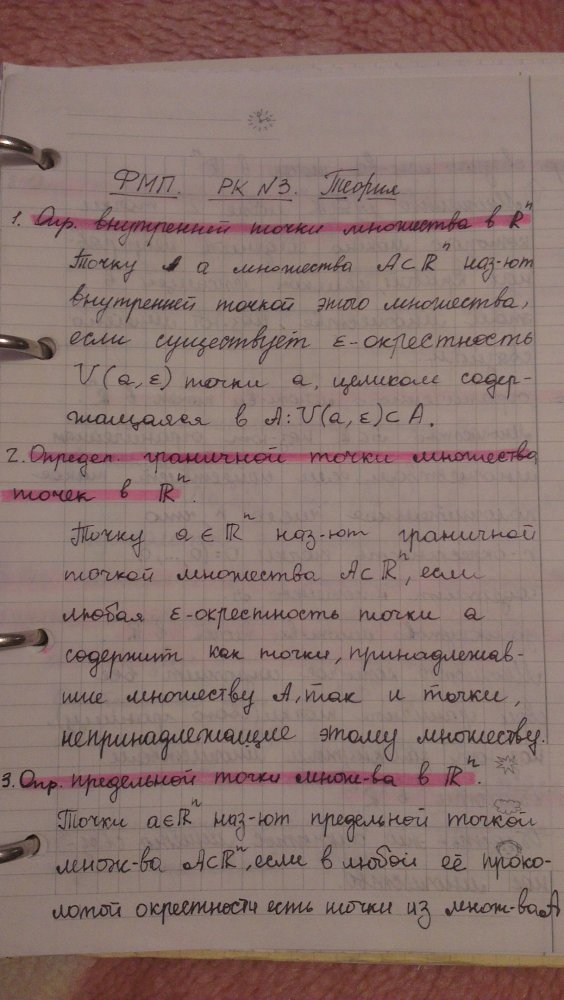 ФМП. РК №3. Теория
1. Опр. внутренней точки множества в ℝⁿ
Точку а множества A⊂ℝⁿ наз-ют
внутренней точкой этого множества,
если существует ε-окрестность
U(a, ε) точки а, целиком содер-
жащаяся в A: U(a, ε)⊂A.
2. Определ. граничной точки множества
точек в ℝⁿ.
Точку a∈ℝⁿ наз-ют граничной
точкой множества A⊂ℝⁿ, если
любая ε-окрестность точки а
содержит как точки, принадлежав-
шие множеству A, так и точки,
непринадлежащие этому множеству.
3. Опр. предельной точки множ-ва в ℝⁿ.
Точки a∈ℝⁿ наз-ют предельной точкой
множ-ва A⊂ℝⁿ, если в любой её проко-
лотой окрестности есть точки из множ-ва A